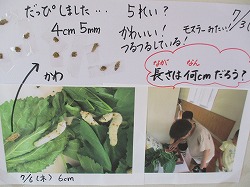 だっぴしました… 5れい？
4cm 5mm かわいい！ モスラーみたい…!
つるつるしている！
かわ
ながさ なん
長さは何cmだろう？
7/6(木) 6cm